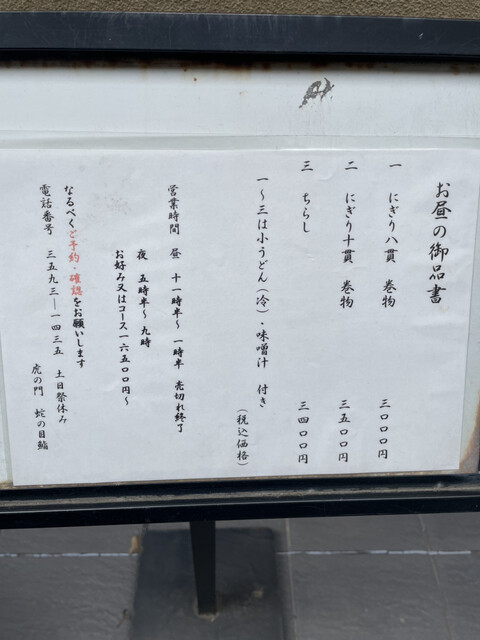 お昼の御品書
一 にぎり八貫 巻物 三〇〇〇円
二 にぎり十貫 巻物 三五〇〇円
三 ちらし 三四〇〇円
一～三は小うどん（冷）・味噌汁 付き
（税込価格）
営業時間 昼 十一時半～一時半 売切れ終了
夜 五時半～九時
お好み又はコース一六五〇〇円～
なるべくご予約・確認をお願いします
電話番号 三五九三―一四三五 土日祭休み
虎の門 蛇の目鮨